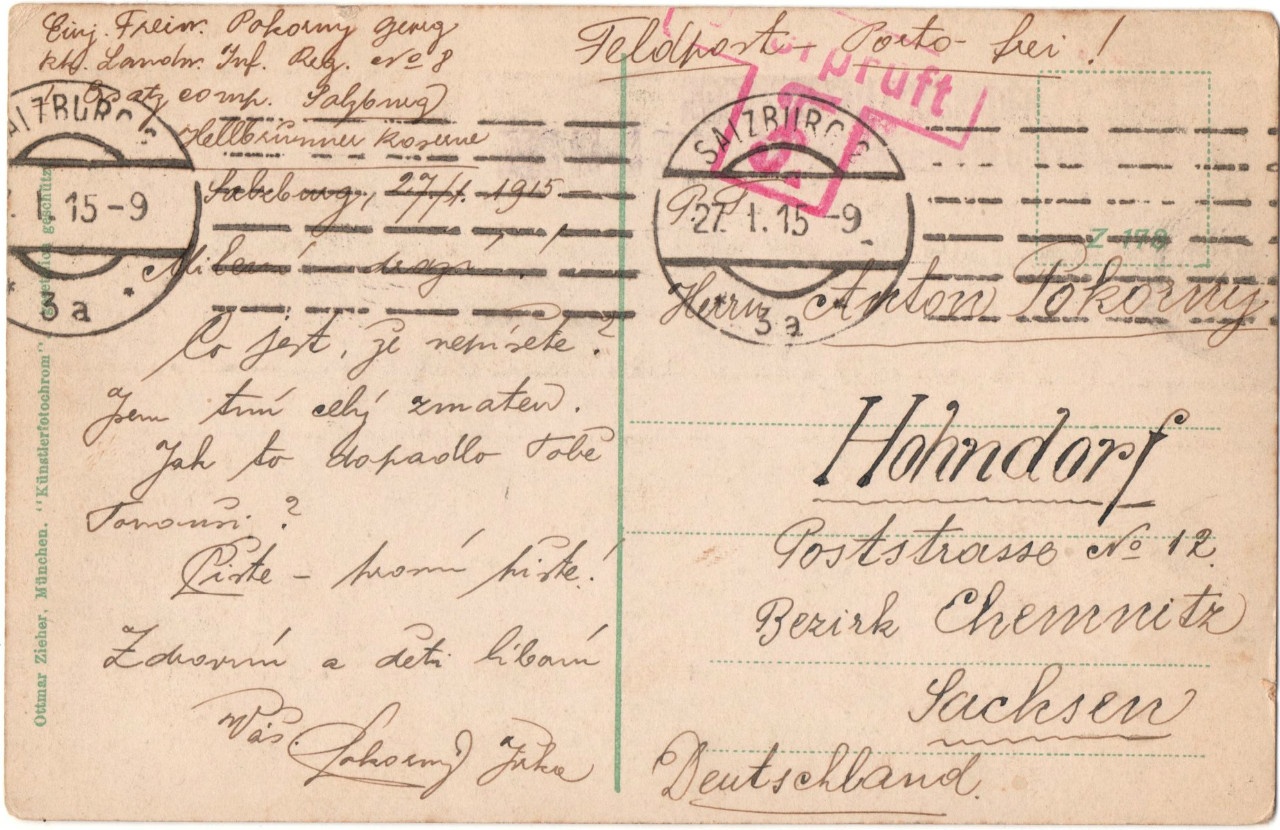 Einj. Freiw. Pokorny Georg
kk. Landw. Inf. Reg. No 8
Ersatzcomp. Salzburg
Hellbrunner Kaserne
Salzburg, 27/1. 1915
Milení drazí!
Co jest, že nepíšete?
Jsem tím celý zmaten.
Jak to dopadlo Tobě
Tonouši?
Pište – prosím pište!
Zdravím a děti líbám
Váš
Pokorný Jirka
Feldpost – Porto-frei!
Überprüft
P. T.
Herrn Anton Pokorny
Hohndorf
Poststrasse No 12.
Bezirk Chemnitz
Sachsen
Deutschland.
SALZBURG 2
1.15-9
3a
SALZBURG 2
27.1.15-9
3a
Z 178
Ottmar Zieher, München. "Künstlerfotochrom" Gesetzlich geschützt